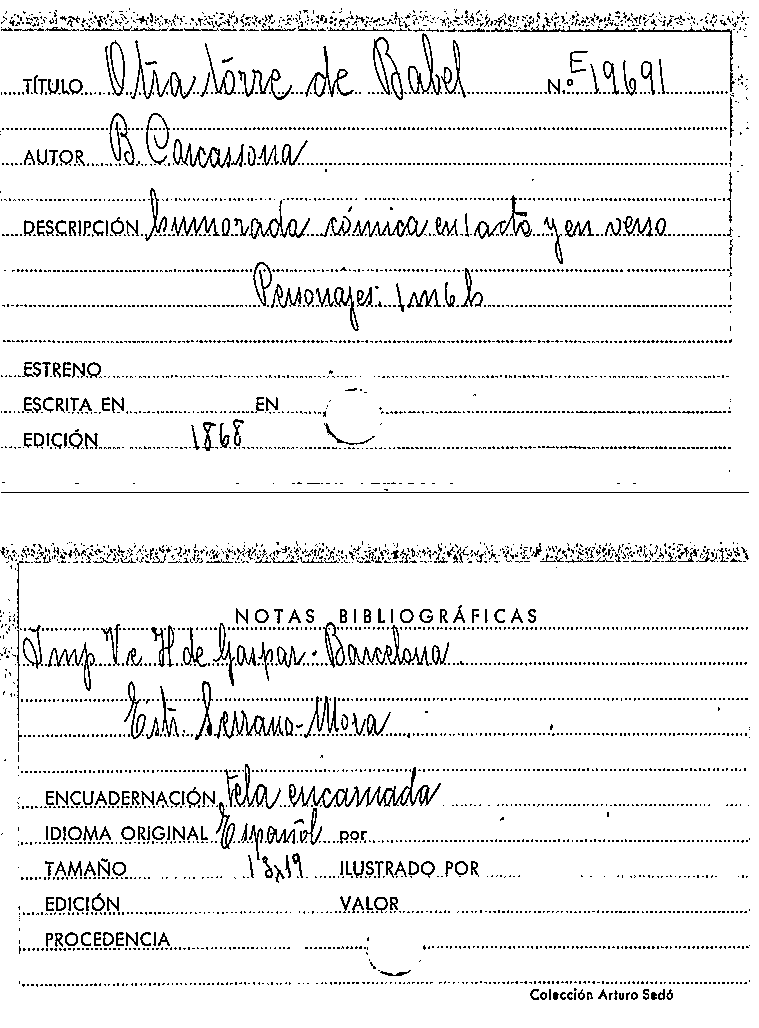 TÍTULO Otra torre de Babel N.º E19691
AUTOR B. Carcassona
DESCRIPCIÓN humorada cómica en 1 acto y en verso
Personajes: 1 m 6 h
ESTRENO
ESCRITA EN EN
EDICIÓN 1868
NOTAS BIBLIOGRÁFICAS
Imp V e H de Gaspar - Barcelona
Estr. Serrano-Mora
ENCUADERNACIÓN tela encarnada
IDIOMA ORIGINAL Español por
TAMAÑO 13x19 ILUSTRADO POR
EDICIÓN VALOR
PROCEDENCIA
Colección Arturo Sedó